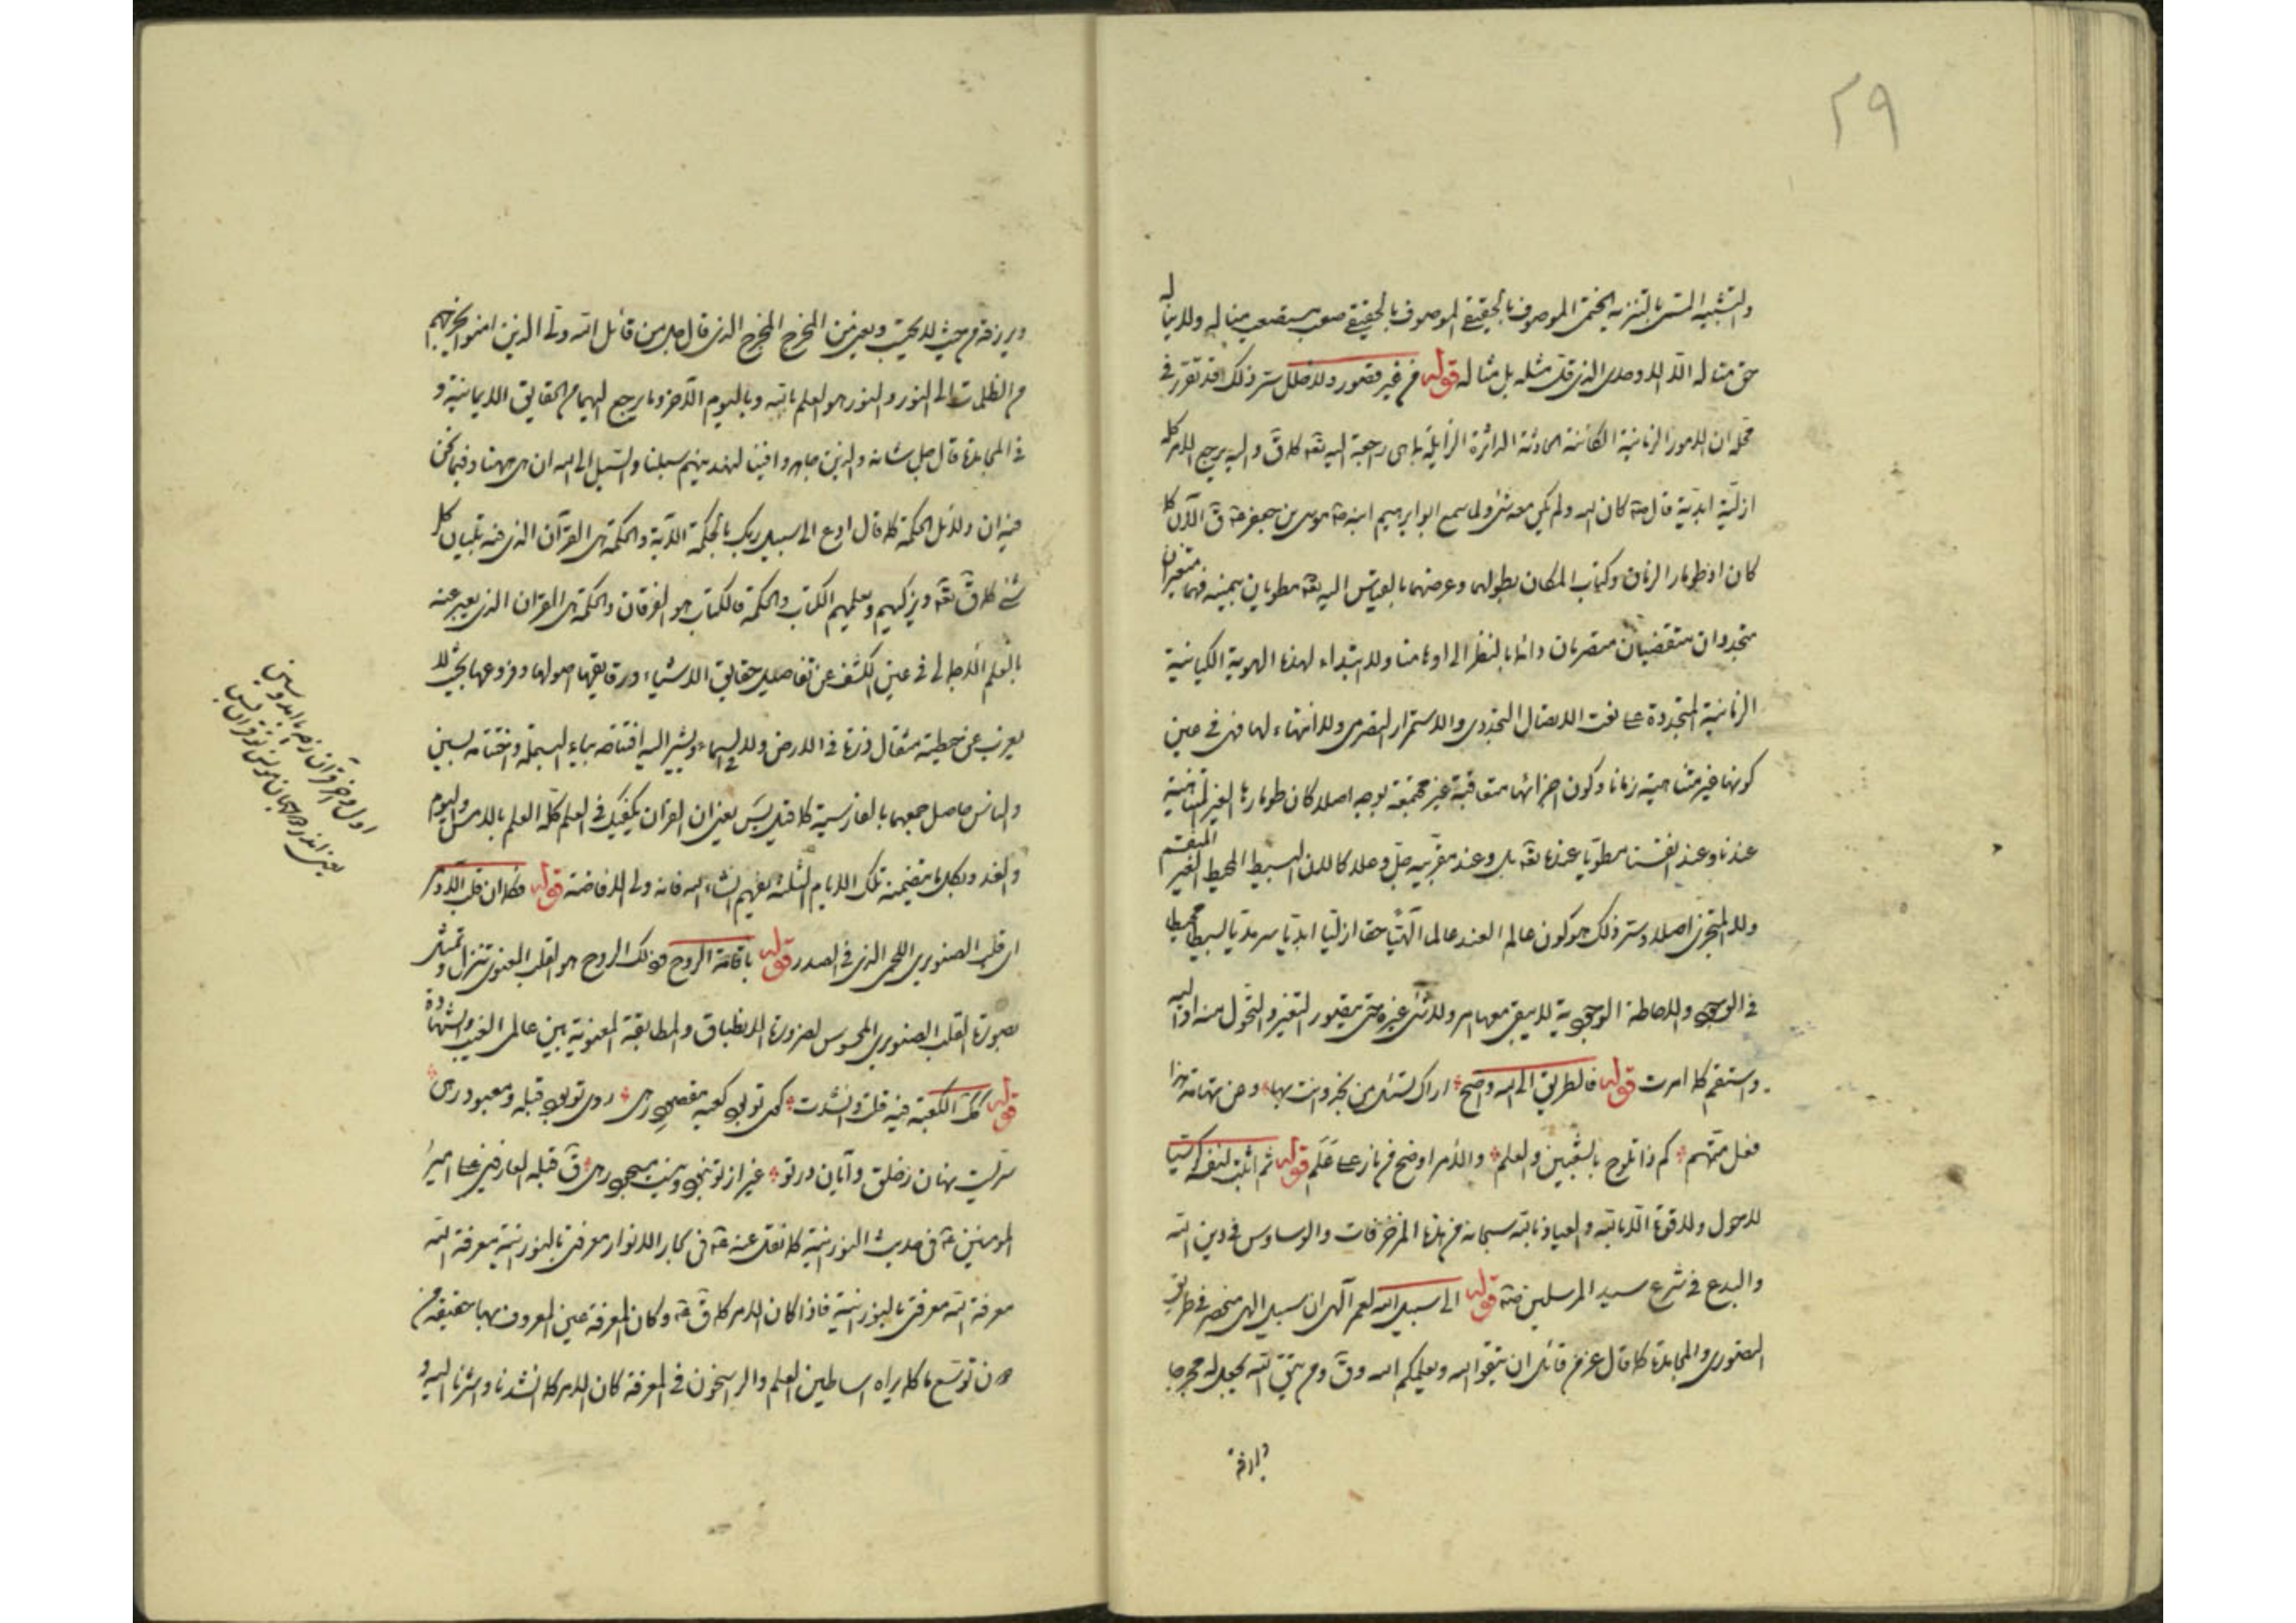 ٢٩
والتشبيه المستى بالتنزيه الختمى الموصوف بالحقيقة الموصوف بالحقيقة صعب مستصعب مناله ولا ينال
حق مناله الا الاوحدى الذى قل مثله بل مثاله قوله من غير قصور ولا خلل ستر ذلك قد تقرر فى
محله ان الامور الزمانية الكائنة الحادثة الداثرة الزايلة بما هى راجعة اليه تعه كما ق واليه يرجع الامر كله
ازلية ابدية قال صه كان الله ولم يكن معه شئ ولما سمع ابو ابرهيم ابنه صه موسى بن جعفر عه ق الآن كما
كان اذ طومار الزمان وكتاب المكان بطولهما وعرضهما بالقياس اليه تعه مطويان بيمينه فهما متغيران
متجددان متقضيان متصرمان دائما بالنظر الى اوهامنا ولا ابتداء لهذه الهوية الكيانية
الزمانية المتجددة على نعت الاتصال التجددى والاستمرار التصرمى ولا انتهاء لها فهى فى عين
كونها غير متناهية زمانا وكون اجزائها متعاقبة غير مجتمعة بوجه اصلا كان طومارها الغير المتناهية
عندنا وعند انفسنا مطويا عنده تعه بل وعند مقربيه جل وعلا كالان البسيط المحيط الغير المنقسم
ولا المتجزى اصلا وستر ذلك هو كون عالم العند عالما الهيا حقا ازليا ابديا سرمديا بسيطا محيطا
فى الوجود والاحاطة الوجودية لا يبقى معها امر ولا شئ غيره حتى يتصور التغير والتحول منه او اليه
واستقم كما امرت قوله فالطريق الى الله واضح اراك تسئل من نجد وانت بها وعن تهامة هذا
فعل متهم كم ذا تلوح بالشعبين والعلم والامر اوضح من نار على علم قوله ثم اثبت لنفسك شيئا
لا حول ولا قوة الا بالله والعياذ بالله سبحانه من هذه المزخرفات والوساوس فى دين الله
والبدع فى شرع سيد المرسلين صه قوله الى سبيل الله لعمر الهى ان سبيل الهى منحصر فى طريق
التقوى والمجاهدة كما قال عز من قائل ان تتقوا الله ويعلمكم الله وق ومن يتق الله يجعل له مخرجا
ويرزقه
ويرزقه من حيث لا يحتسب ويعبر عن المخرج المخرج الذى قال جل من قائل الله ولى الذين امنوا يخرجهم
من الظلمات الى النور والنور هو العلم بالله وباليوم الآخر وما يرجع اليهما من الحقايق الايمانية و
فى المجاهدة قال جل شانه والذين جاهدوا فينا لنهدينهم سبلنا والسبيل الى الله ان هى ههنا وفيما نحن
فيه ان ولاذيل الحكمة كما قال ادع الى سبيل ربك بالحكمة الآية والحكمة هى القرآن الذى فيه تبيان كل
شئ كما ق تعه ويزكيهم ويعلمهم الكتاب والحكمة فالكتاب هو الفرقان والحكمة هى القران الذى يعبر عنه
بالعلم الاجمالى فى عين الكشف عن تفاصيل حقايق الاشياء ورقايقها اصولها وفروعها بحيث لا
يعزب عن حيطته مثقال ذرة فى الارض ولا فى السماء ويشير اليه افتتاحه بباء البسملة واختتامه بسين
والناس حاصل جمعهما بالفارسية كما قيل بس يعنى ان القران يكفيك فى العلم كله العلم بالامس واليوم
والغد وبكل ما يتضمنه تلك الايام الثلثة تفهم انشاء الله فانه ولى الافاضة قوله فكما ان قلب الآدمى
اى قلبه الصنوبرى اللحمى الذى فى الصدر قوله باقامة الروح فذلك الروح هو القلب المعنوى تنزل وتمثل
بصورة القلب الصنوبرى المحسوس لضرورة الانطباق والمطابقة المعنوية بين عالمى الغيب والشهادة
قوله كذلك الكعبة فيه قلت وانشدت كه تويى كعبه مقصود رهى روى تويى قبله ومعبود رهى
سريست نهان ز خلق وآيان در تو غير از تو نبود ونيست مسجود رهى ق قبله العارفين على امير
المومنين عه فى حديث النورانية كما نقل عنه عه فى بحار الانوار معرفتى بالنورانية معرفة الله
معرفة الله معرفتى بالنورانية فاذا كان الامر كما ق عه وكان المعرفة عين المعروف بها حقيقة من
دون توسع ما كما يراه اساطين العلم والراسخون فى المعرفة كان الامر كما انشدنا واشرنا اليه و
اول وآخر قرآن ز چه با آمد وسين
يعنى اندر ره دين رهبر تو قرآن بس